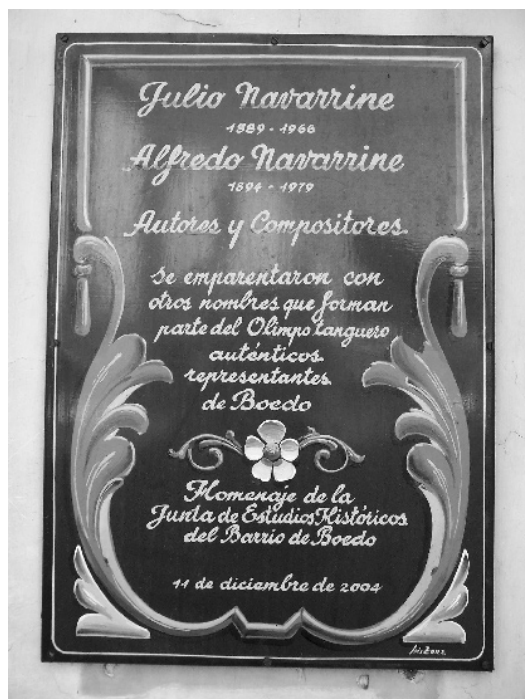 Julio Navarrine
1889 - 1966
Alfredo Navarrine
1894 - 1979
Autores y Compositores
Se emparentaron con
otros nombres que forman
parte del Olimpo tanguero
auténticos
representantes
de Boedo
Homenaje de la
Junta de Estudios Históricos
del Barrio de Boedo
11 de diciembre de 2004